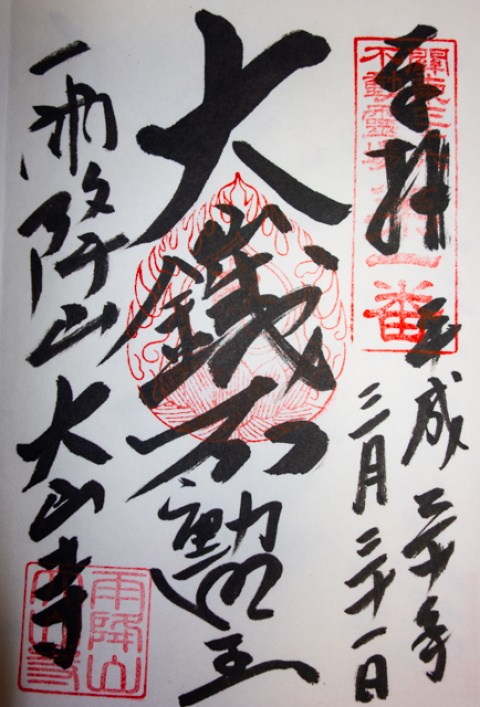 奉拝
関東三十六
不動霊場第一番
平成二十年
三月三十一日
大鐵不動明王
雨降山大山寺
雨降山
大山寺